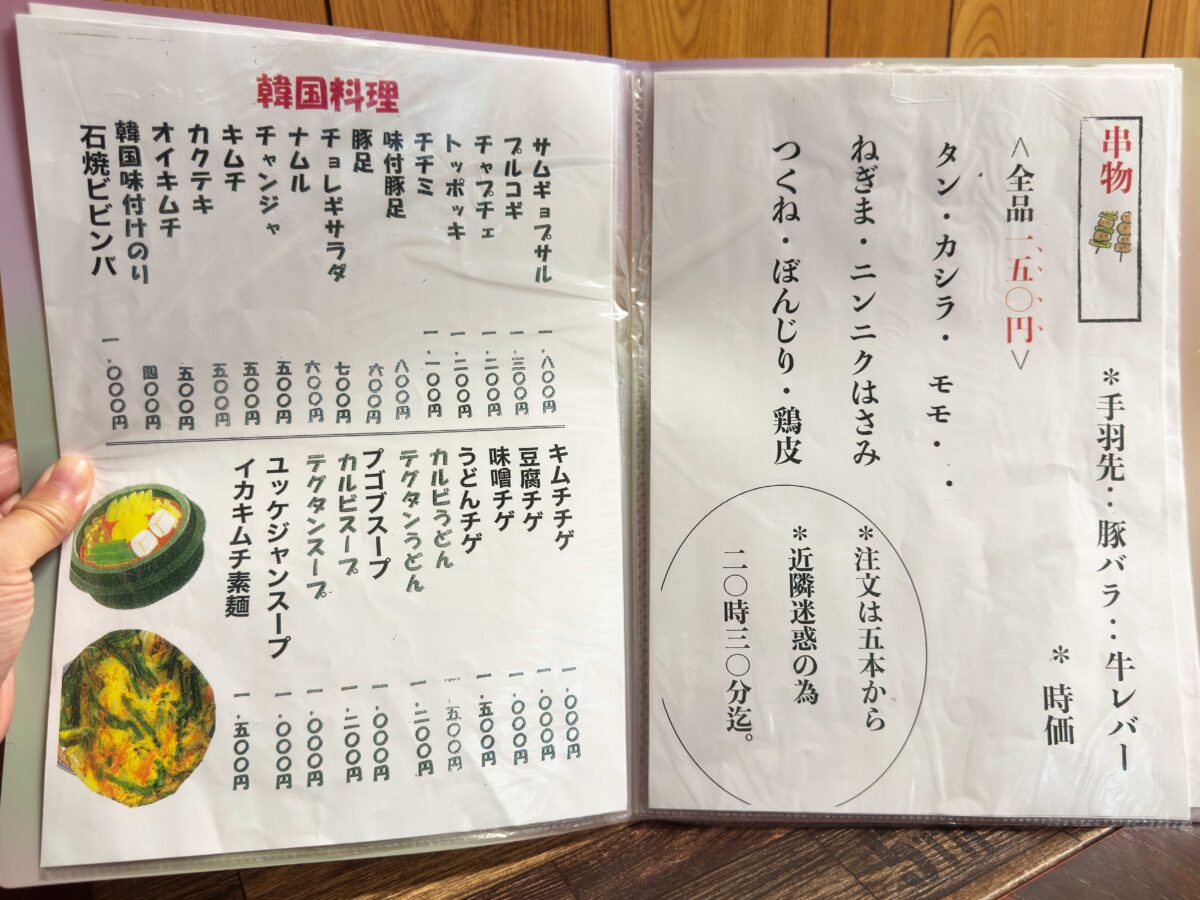 串物
＊手羽先：豚バラ：牛レバー
＊時価
<全品一五〇円>
タン・カシラ・モモ・・
ねぎま・ニンニクはさみ
つくね・ぼんじり・鶏皮
＊注文は五本から
＊近隣迷惑の為
二〇時三〇分迄。
韓国料理
サムギョプサル 一.八〇〇円
プルコギ 一.三〇〇円
チャプチェ 一.二〇〇円
トッポッキ 一.二〇〇円
チヂミ 一.一〇〇円
味付豚足 八〇〇円
豚足 六〇〇円
チョレギサラダ 七〇〇円
ナムル 六〇〇円
チャンジャ 五〇〇円
キムチ 五〇〇円
カクテキ 五〇〇円
オイキムチ 五〇〇円
韓国味付けのり 四〇〇円
石焼ビビンバ 一.〇〇〇円
キムチチゲ 一.〇〇〇円
豆腐チゲ 一.〇〇〇円
味噌チゲ 一.〇〇〇円
うどんチゲ 一.五〇〇円
カルビうどん 一.五〇〇円
テグタンうどん 一.二〇〇円
プゴブスープ 一.〇〇〇円
カルビスープ 一.二〇〇円
テグタンスープ 一.〇〇〇円
ユッケジャンスープ 一.〇〇〇円
イカキムチ素麺 一.五〇〇円